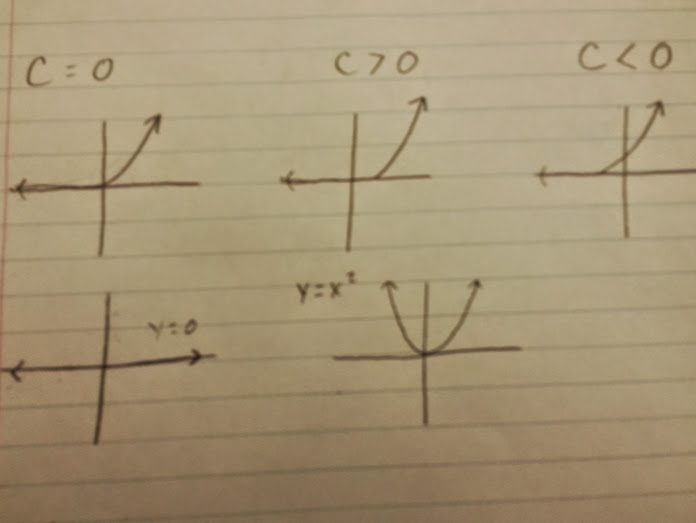 C = 0
C > 0
C < 0
y = 0
y = x²